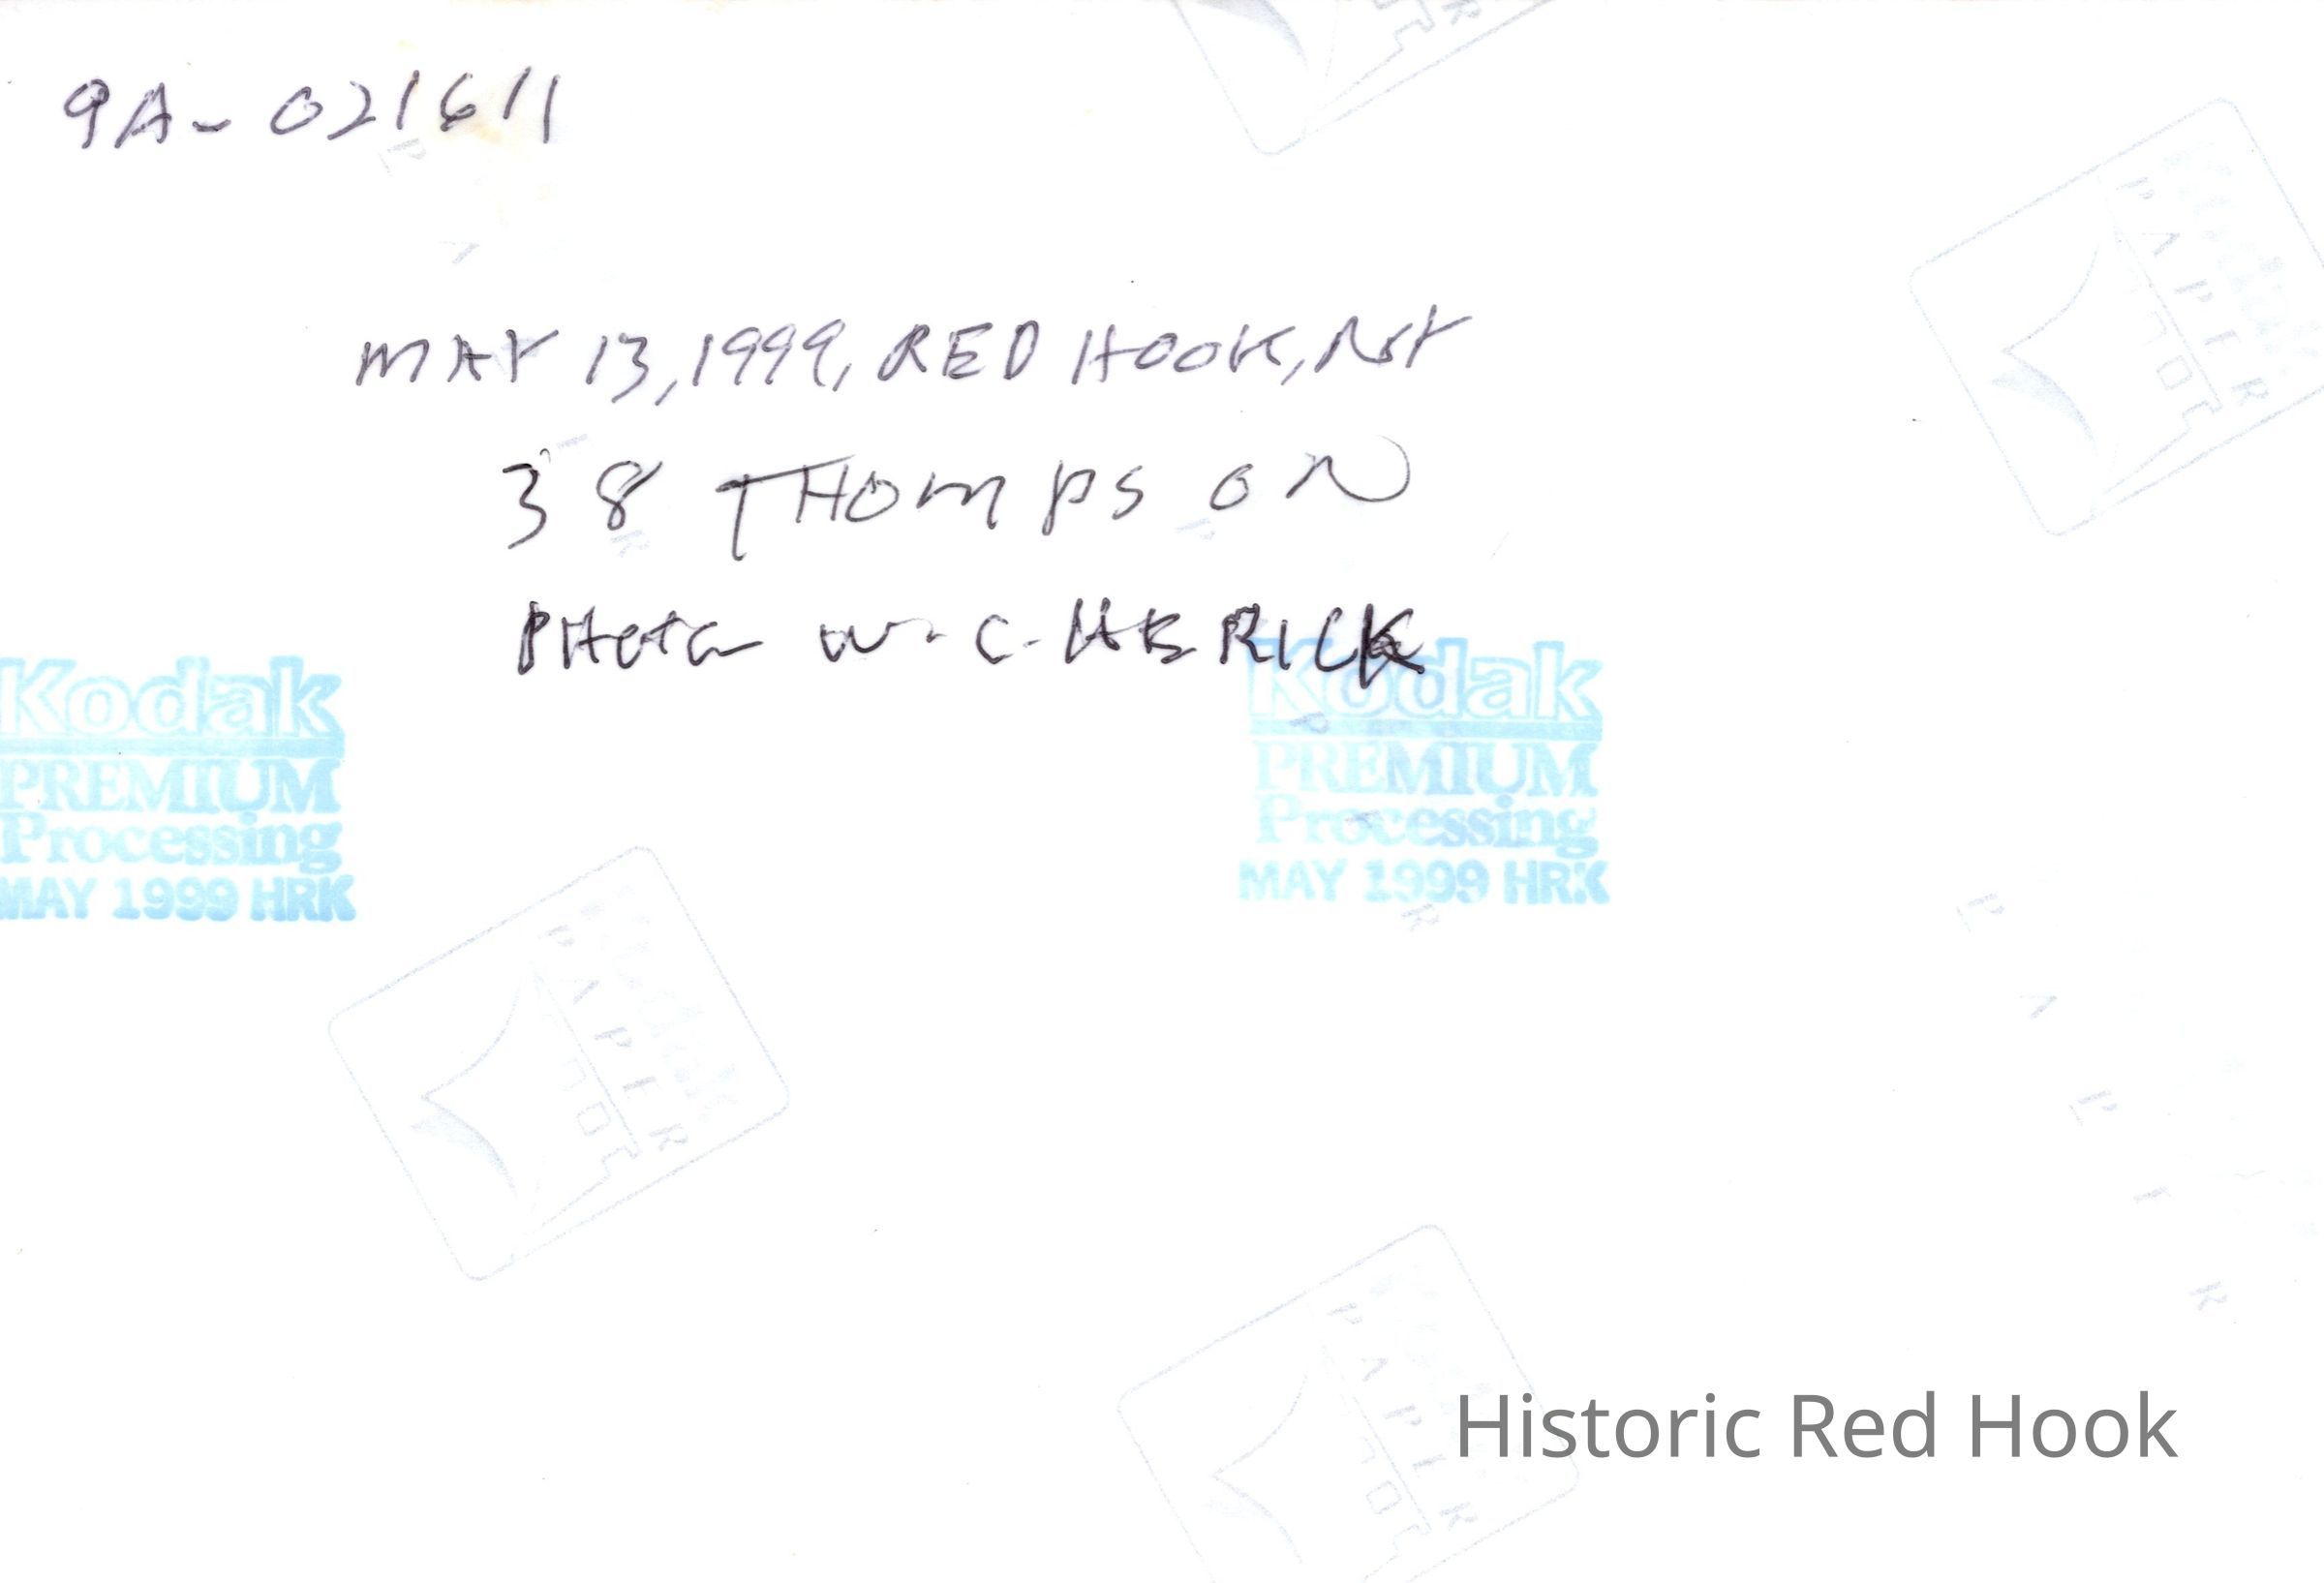 9A-021611
MAY 13, 1999, RED HOOK, NY
38 THOMPSON
PHOTO W. C.
Kodak
PREMIUM
Processing
MAY 1999 HRK
Kodak
PREMIUM
Processing
MAY 1999 HRK
PAPER
PAPER
PAPER
PAPER
Historic Red Hook